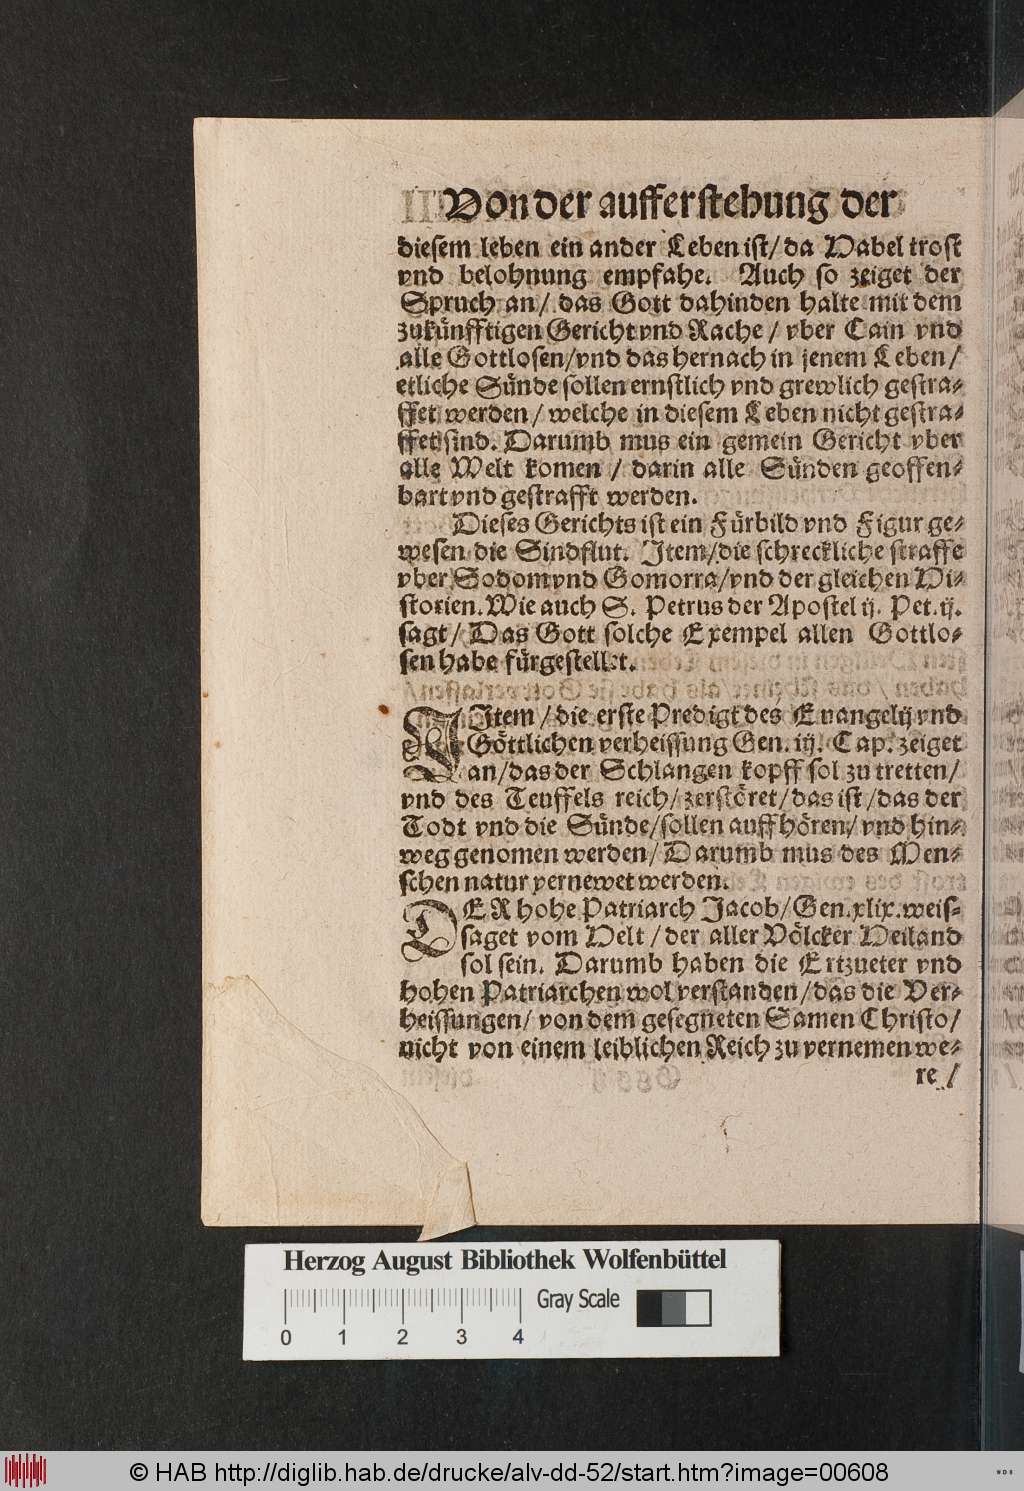 Von der aufferstehung der
diesem leben ein ander Leben ist/ da Habel trost
vnd belohnung empfahe. Auch so zeiget der
Spruch an/ das Gott dahinden halte mit dem
zukünfftigen Gericht vnd Rache / vber Cain vnd
alle Gottlosen/vnd das hernach in jenem Leben/
etliche Sünde sollen ernstlich vnd grewlich gestra-
ffet werden/ welche in diesem Leben nicht gestra-
ffet sind. Darumb mus ein gemein Gericht vber
alle Welt komen / darin alle Sünden geoffen-
bart vnd gestrafft werden.
Dieses Gerichts ist ein Fürbild vnd Figur ge-
wesen die Sindflut. Item/die schreckliche straffe
vber Sodom vnd Gomorra/vnd der gleichen Hi-
storien. Wie auch S. Petrus der Apostel ij. Pet. ij.
sagt/ Das Gott solche Exempel allen Gottlo-
sen habe fürgestellet.
JItem / die erste Predigt des Euangelij vnd
Göttlichen verheissung Gen. iij. Cap. zeiget
an/das der Schlangen kopff sol zu tretten/
vnd des Teuffels reich/ zerstöret/das ist/das der
Todt vnd die Sünde/sollen auff hören/ vnd hin-
weg genomen werden/ Darumb mus des Men-
schen natur vernewet werden.
DER hohe Patriarch Jacob/ Gen. xlix. weis-
saget vom Helt / der aller Völcker Heiland
sol sein. Darumb haben die Ertzueter vnd
hohen Patriarchen wol verstanden/das die Ver-
heissungen/ von dem gesegneten Samen Christo/
nicht von einem leiblichen Reich zu vernemen we-
re /
Herzog August Bibliothek Wolfenbüttel
Gray Scale
0 1 2 3 4
© HAB http://diglib.hab.de/drucke/alv-dd-52/start.htm?image=00608